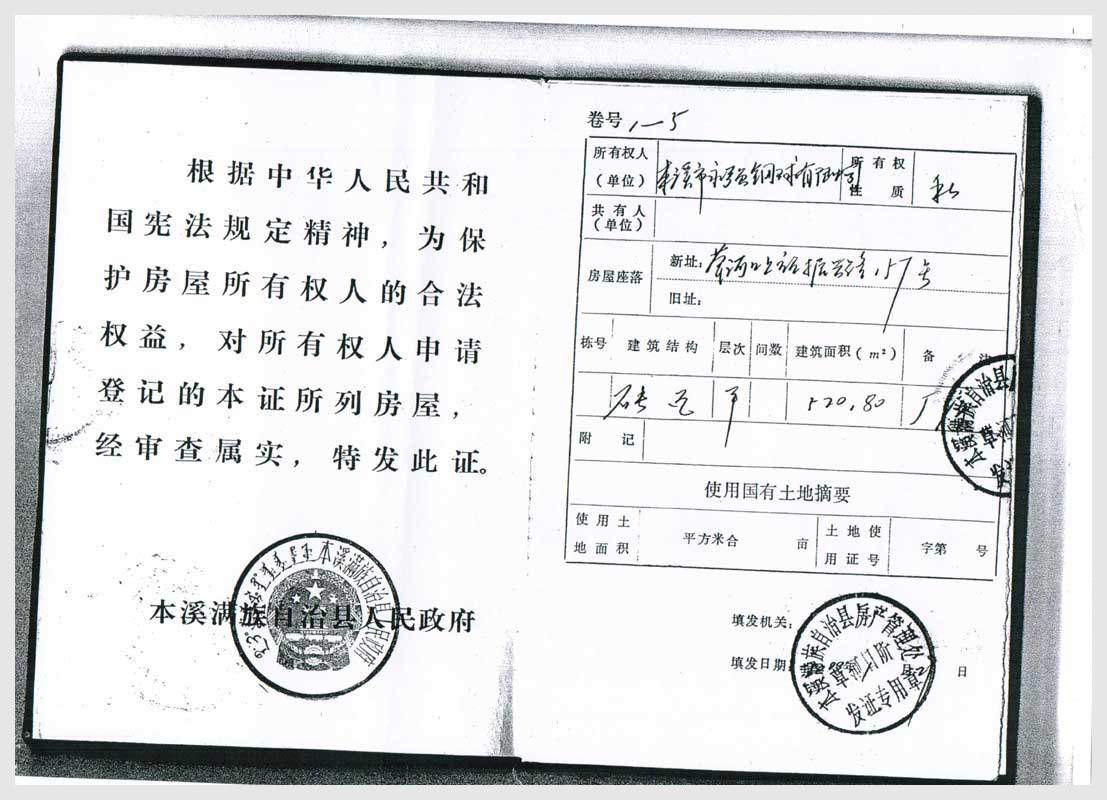 根据中华人民共和
国宪法规定精神，为保
护房屋所有权人的合法
权益，对所有权人申请
登记的本证所列房屋，
经审查属实，特发此证。
本溪满族自治县人民政府
本溪满族自治县人民政府
卷号 1—5
所有权人（单位） 本溪市永强钢球有限公司 所有权性质 私
共有人（单位）
房屋座落 新址：草河口 振兴路 157号
旧址：
栋号 建筑结构 层次 间数 建筑面积（m²） 备
砖 平 520.80 厂
附记
使用国有土地摘要
使用土地面积 平方米合 亩 土地使用证号 字第 号
填发机关：
填发日期： 日
本溪满族自治县房产管理处
草河口所
发证专用章